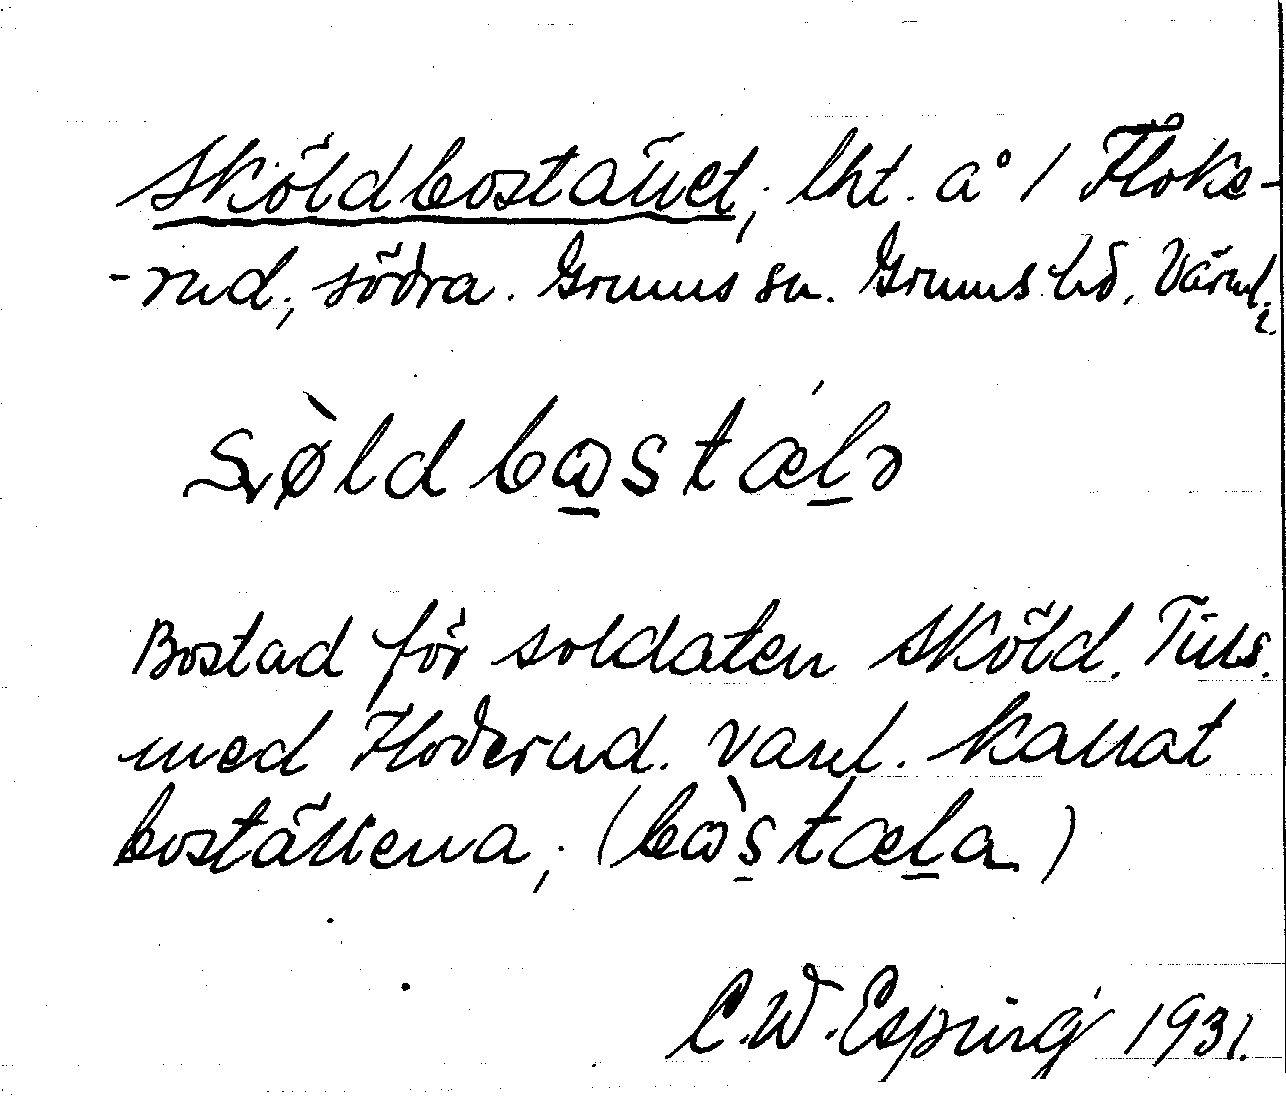 Sköldbostället; lht. å 1 Floke-
-rud; södra. Grums sn. Grums hd. Värml.;
bostad för soldaten Sköld. Tills.
med Floderud. vanl. kallat
boställena; (
C.W. Esping 1931.